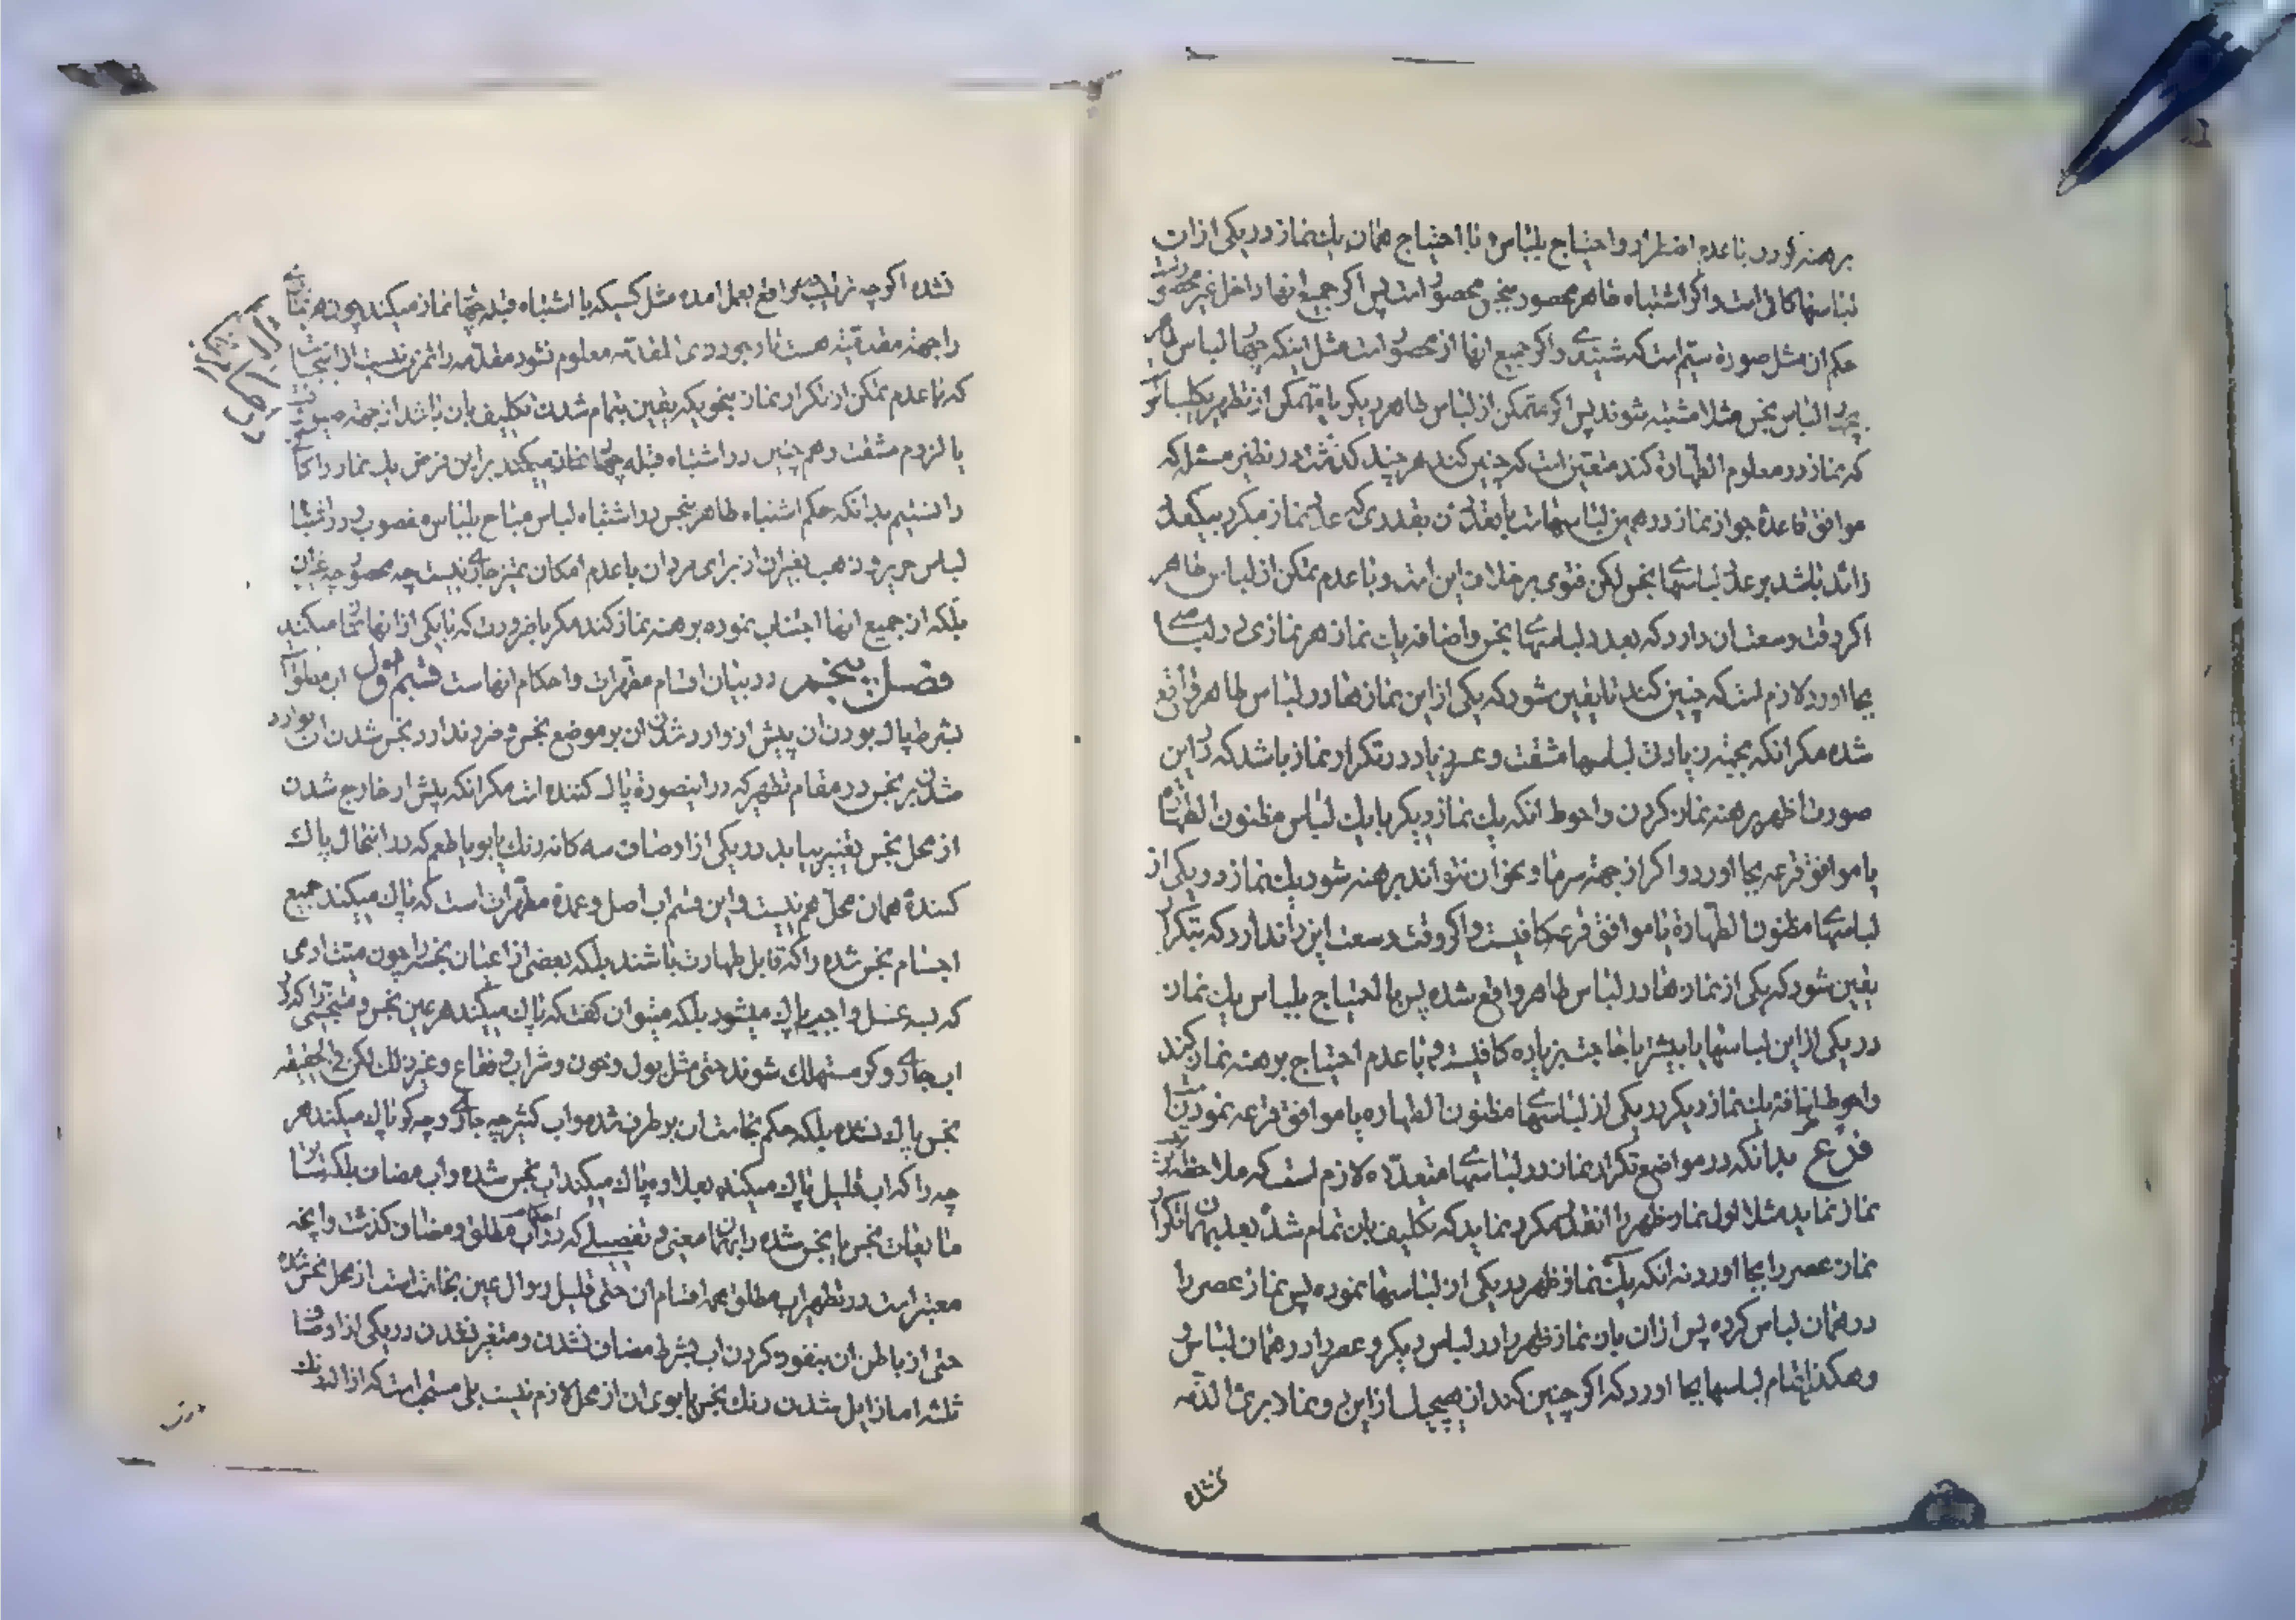 برهنه کردد با عدم اضطرار و احتیاج بلباس و با احتیاج همان یك نماز در یکی از ان
لباسها کافی است و اکر اشتباه طاهر محصور بنجس محصور است پس اکر جمیع انها داخل غیر محصور
حکم ان مثل صورة سیم است که شنیدی و اکر جمیع انها از محصور است مثل اینکه چهار لباس طاهر
بچهار لباس نجس مثلا مشتبه شوند پس اکر متمکن از لباس طاهر دیکر یا متمکن از تطهیر یکلباس
که نماز در معلوم الطهارة کند متعین است که چنین کند هر چند کذشت در نظیر مسئله که
موافق قاعدۀ جواز نماز در همین لباسهاست بقدری که عدد نماز مکرر بیکعدد
زائد باشد بر عدد لباسهای نجس لکن فتوی بر خلاف این است و با عدم تمکن از لباس طاهر
اکر وقت وسعت ان دارد که بعدد لباسهای نجس و اضافه یك نماز هر نمازی در لباسی
بجا اورد لازم است که چنین کند تا یقین شود که یکی از این نمازها در لباس طاهر واقع
شده مکر انکه بجهة زیادتی لباسها مشقت و عسر زیاد در تکرار نماز باشد که در این
صورت ظهر برهنه نماز کردن و احوط انکه یك نماز دیکر با یك لباس مظنون الطهارة
یا موافق قرعه بجا اورد و اکر از جهة سرما و نحو ان نتواند برهنه شود یك نماز در یکی از
لباسهای مظنون الطهارة یا موافق قرعه کافیست و اکر وقت وسعت این را ندارد که بتکرار
یقین شود که یکی از نمازها در لباس طاهر واقع شده پس با احتیاج بلباس یك نماز
در یکی از این لباسها یا بیشتر با حاجت بزیاده کافیست و با عدم احتیاج برهنه نماز کند
و احوط اضافۀ یك نماز دیکر در یکی از لباسهای مظنون الطهاره یا موافق قرعه نمودن است
فرع بدانکه در مواضع تکرار نماز در لباسهای متعدده لازم است که ملاحظه ترتیب
نماز نماید مثلا اول نماز ظهر را انقدر مکرر نماید که تکلیف بان تمام شد بعد بهمان تکرار
نماز عصر را بجا اورد نه انکه یك نماز ظهر در یکی از لباسها نموده پس نماز عصر را
در همان لباس کرده پس از ان باز نماز ظهر را در لباس دیکر و عصر را در همان لباس
و هکذا تمام لباسها بجا اورد که اکر چنین کند از هیچیك از این دو نماز بری الذمه
نشده
نشده اکر چه ترتیب در واقع بعمل امده مثل کسیکه با اشتباه قبله چهار نماز میکند چون هر نماز
را جهة مقدمیته هست تا وجود ذی المقدمه معلوم نشود مقدمه را ثمری نیست از اینجاست
که با عدم تمکن از تکرار نماز بنحویکه یقین بتمام شدن تکلیف بان باشد از جهة ضیق وقت
یا لزوم مشقت و هم چنین در اشتباه قبله چهار نماز میکند بر این فرض یك نماز را کافی
دانستیم بدانکه حکم اشتباه طاهر بنجس در اشتباه لباس مباح بلباس مغصوب و در اشتباه
لباس حریر و ذهب بغیر ان از برای مردان با عدم امکان تمیز جاری نیست چه محصور چه غیر ان
بلکه از جمیع انها اجتناب نموده برهنه نماز کند مکر با ضرورت که با یکی از انها نماز میکند
فصل پنجم در بیان اقسام مطهرات و احکام انهاست قسم اول اب مطلق
بشرط پاك بودن ان پیش از وارد شدن ان بر موضع نجس و ضرر ندارد نجس شدن ان بوارد
شدن بر نجس در مقام تطهیر که در اینصورة پاك کننده است مکر انکه پیش از خارج شدن
از محل نجس تغییر بیابد در یکی از اوصاف سه کانه رنك یا بو یا طعم که در اینحال پاك
کنندۀ همان محل هم نیست و این قسم اب اصل و عمدۀ مطهرات است که پاك میکند جمیع
اجسام نجس شده را که قابل طهارت باشند بلکه بعضی از اعیان نجسه را چون میت ادمی
که بسه غسل واجب پاك میشود بلکه میتوان کفت که پاك میکند هر عین نجس و متنجسی را که در
اب جاری و کر مستهلك شوند حتی مثل بول و خون و شراب و فقاع و غیر ذلك لکن فی الحقیقه
نجس پاك نشده بلکه حکم نجاست ان بر طرف شده و اب کثیر چه جاری و چه کر پاك میکند هر
چه را که اب قلیل پاك میکند بعلاوه پاك میکند اب نجس شده و اب مضاف بلکه سایر
مایعات نجس یا نجس شده را بهمان معنی و تفصیلی که در احکام اب مطلق و مضاف کذشت و انچه
معتبر است در تطهیر اب مطلق بهمه اقسام ان حتی قلیل زوال عین نجاست است از محل نجس شده
حتی از باطن ان بنفوذ کردن اب بشرط مضاف نشدن و متغیر نشدن در یکی از اوصاف
ثلثه اما زایل شدن رنك نجس یا بوی ان از محل لازم نیست بلی مستحب است که ازالۀ رنك